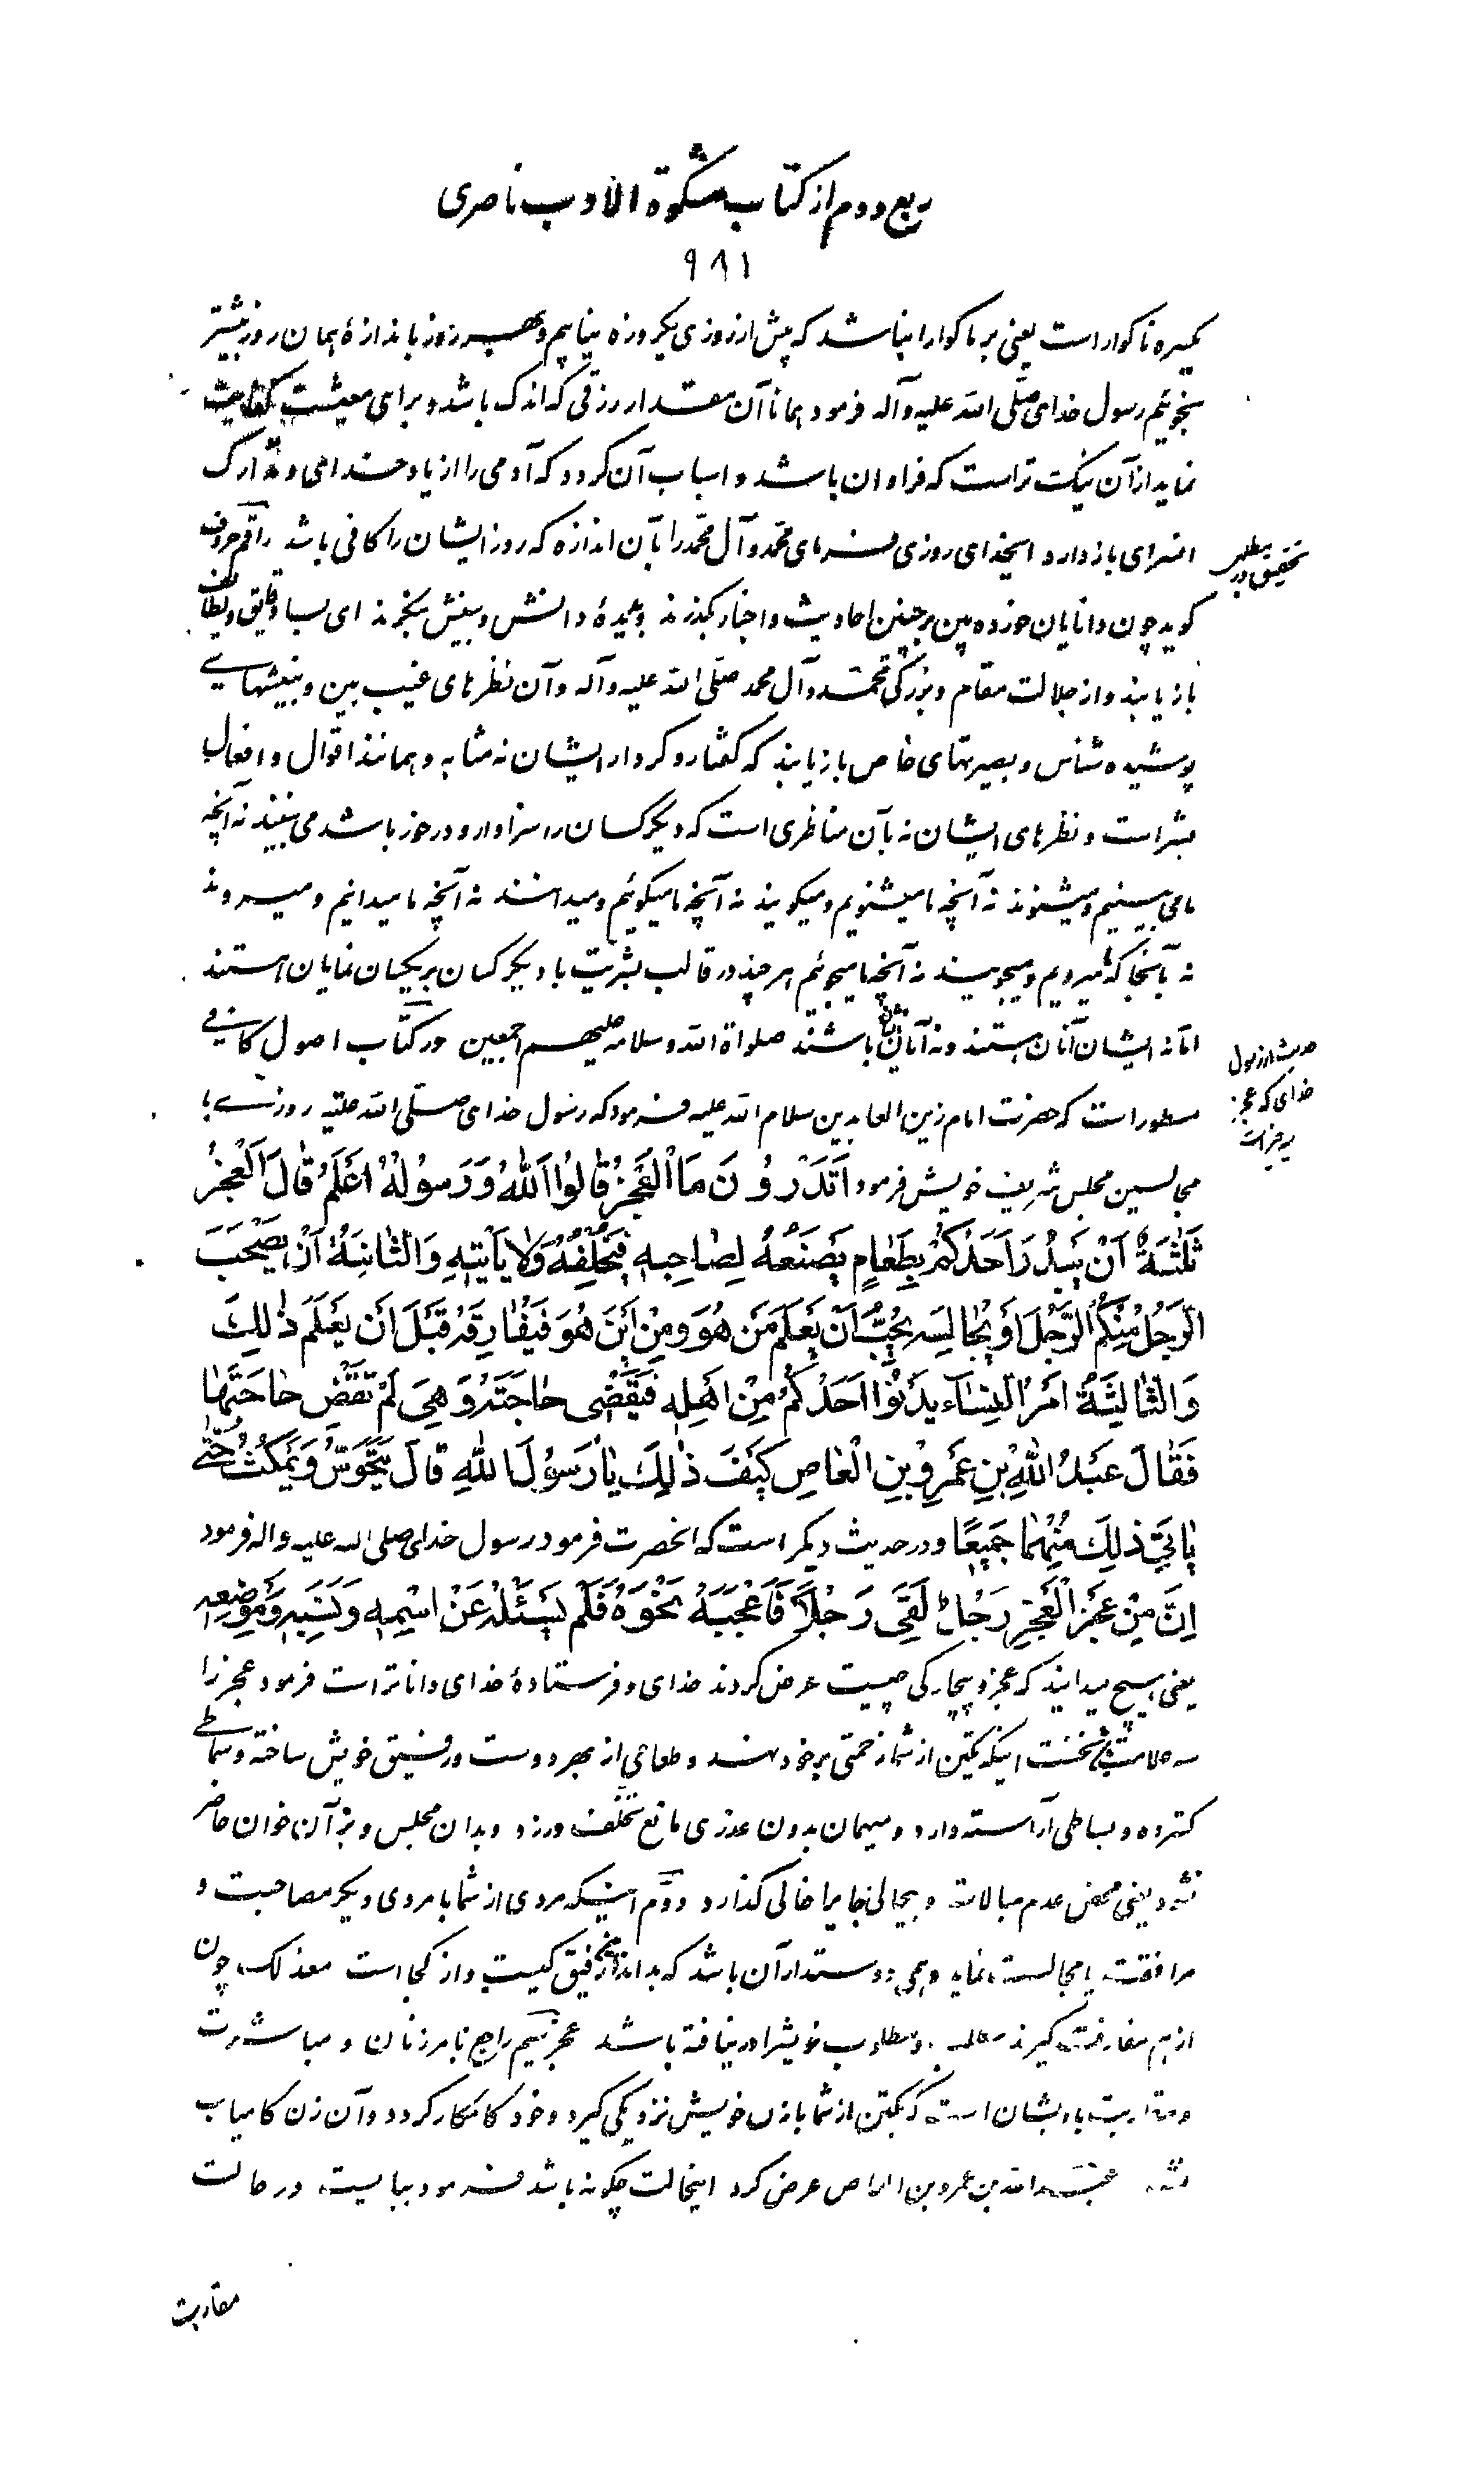 ربع دوم از کتاب مشکوة الادب ناصری
۹۸۱
یکسره ناگوار است یعنی بر ما گوارا نباشد که پیش از روزی یکروزه بیابیم و بهر روز باندازهٔ همان روز بیشتر
بجوئیم رسول خدای صلّی الله علیه وآله فرمود همانا آن مقدار رزقی که اندک باشد و برای معیشت کفایت
نماید از آن نیک تر است که فراوان باشد و اسباب آن گردد که آدمی را از یاد خدای و تدارک
سرای باز دارد ایخدای روزی فرمای محمّد وآل محمّد را بآن اندازه که روز ایشان را کافی باشد راقم حروف
گوید چون دانایان خورده بین بر چنین احادیث و اخبار بگذرند و بدیدهٔ دانش و بینش بنگرند ای بسا دقایق و لطائف
باز یابند و از جلالت مقام و بزرگی محمّد وآل محمد صلّی الله علیه وآله وآن نظرهای غیب بین و بینشهای
پوشیده شناس و بصیرتهای خاص باز یابند که گفتار و کردار ایشان نه مشابه و همانند اقوال و افعال
بشر است و نظرهای ایشان نه بآن مناظری است که دیگر کسان را سزاوار و در خور باشد می بینند نه آنچه
ما می بینیم و میشنوند نه آنچه ما میشنویم و میگویند نه آنچه ما میگوئیم و میدانند نه آنچه ما میدانیم و میروند
نه بآنجا که ما میرویم و میجویند نه آنچه ما میجوئیم هر چند در قالب بشریّت با دیگر کسان بر یکسان نمایان هستند
امّا نه ایشان آنان هستند و نه آنان ایشان باشند صلواة الله وسلامه علیهم اجمعین در کتاب اصول کافی
مسطور است که حضرت امام زین العابدین سلام الله علیه فرمود که رسول خدای صلّی الله علیه روزی با
مجالسین مجلس شریف خویش فرمود اَتَدْرُونَ مَا الْعَجْزُ قَالُوا اَللّٰهُ وَرَسُولُهُ اَعْلَمُ قَالَ اَلْعَجْزُ
ثَلٰثَةٌ اَنْ يَبْدُرَ اَحَدُكُمْ بِطَعَامٍ يَصْنَعُهُ لِصَاحِبِهِ فَيُخْلِفُهُ وَلَا يَأْتِيهِ وَالثَّانِيَةُ اَنْ يَصْحَبَ
الرَّجُلُ مِنْكُمُ الرَّجُلَ اَوْ يُجَالِسَهُ يُحِبُّ اَنْ يَعْلَمَ مَنْ هُوَ وَمِنْ اَيْنَ هُوَ فَيُفَارِقَهُ قَبْلَ اَنْ يَعْلَمَ ذٰلِكَ
وَالثَّالِثَةُ اَمْرُ النِّسَاءِ يَدْنُوا اَحَدُكُمْ مِنْ اَهْلِهِ فَيَقْضِى حَاجَتَهُ وَهِيَ لَمْ تَقْضِ حَاجَتَهَا
فَقَالَ عَبْدُ اللّٰهِ بْنِ عَمْرِو بْنِ الْعَاصِ كَيْفَ ذٰلِكَ يَا رَسُولَ اللّٰهِ قَالَ يَتَحَوَّسُ وَيَمْكُثُ حَتّٰى
يَأْتِيَ ذٰلِكَ مِنْهُمَا جَمِيعًا و در حدیث دیگر است که انحضرت فرمود رسول خدای صلی الله علیه واله فرمود
اِنَّ مِنْ عَجْزِ الْعَجْزِ رَجُلًا لَقِيَ رَجُلًا فَاَعْجَبَهُ نَحْوُهُ فَلَمْ يَسْئَلْهُ عَنْ اسْمِهِ وَنَسَبِهِ وَمَوْضِعِهِ
یعنی هیچ میدانید که عجز و بیچارگی چیست عرض کردند خدای و فرستادهٔ خدای داناتر است فرمود عجز را
سه علامت باشد نخست اینکه یکتن از شما زحمتی بر خود نهد و طعامی از بهر دوست و رفیق خویش ساخته و سماطی
گسترده و بساطی آراسته دارد و میهمان بدون عذری مانع تخلّف ورزد و بدان مجلس و بر آن خوان حاضر
نشود یعنی محض عدم مبالات و بیحالی جایرا خالی گذارد دوّم اینکه مردی از شما با مردی دیگر مصاحبت و
مرافقت یا مجالست نماید و همی دوستدار آن باشد که بداند این رفیق کیست و از کجا است معذلک چون
از هم مفارقت گیرند مطلب و مطلوب خویشرا در نیافته باشد عجز سیّم راجع بامر زنان و مباشرت
و مقاربت با ایشان است که یکتن از شما با زن خویش نزدیکی گیرد و خود کامکار گردد و آن زن کامیاب
نشود عبدالله بن عمرو بن العاص عرض کرد اینحالت چگونه باشد فرمود ببایست در حالت
مقاربت
تحقیق در مطلب
حدیث از رسول
خدای که عجز
سه چیز است